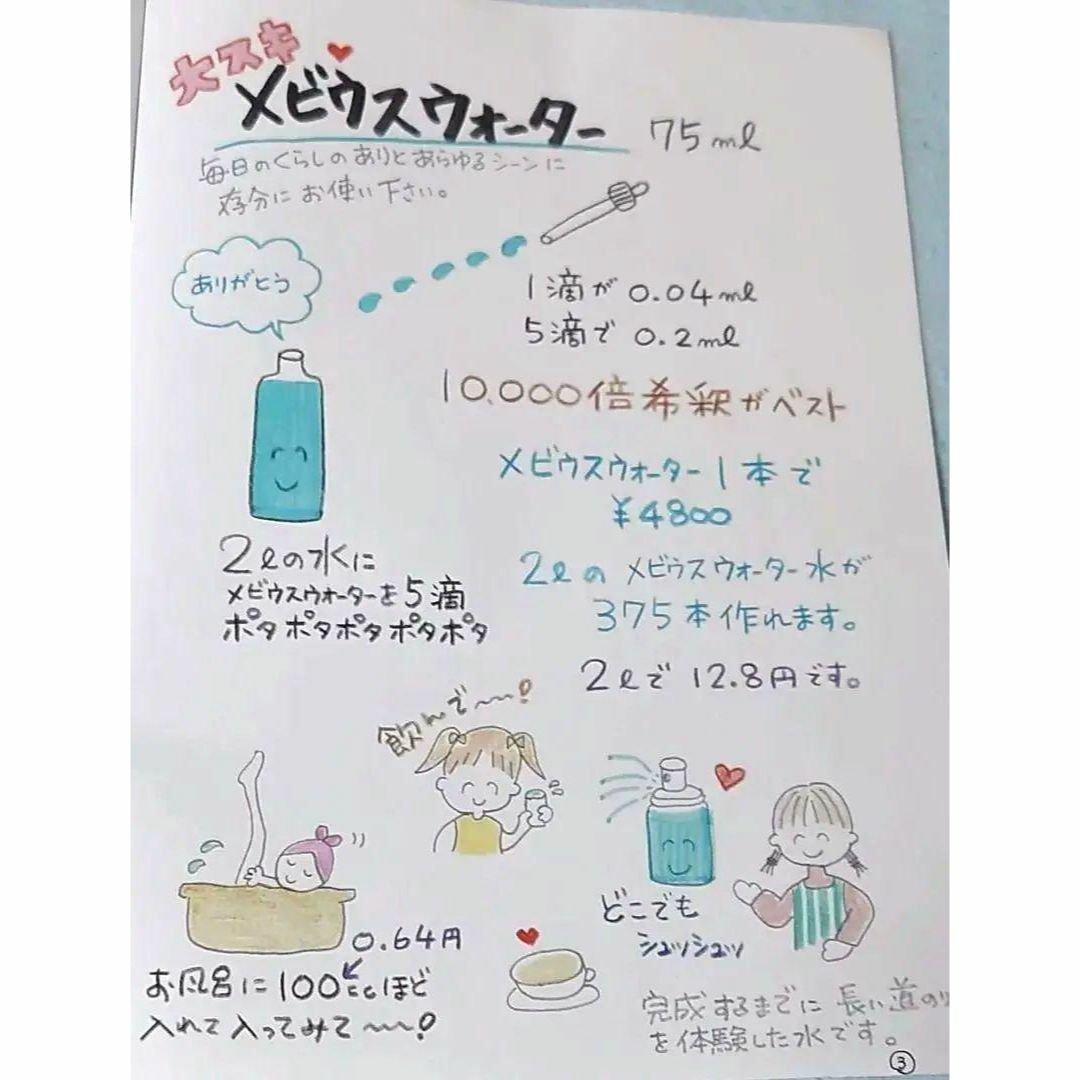 大スキ
メビウスウォーター 75ml
毎日のくらしのありとあらゆるシーンに
存分にお使い下さい。
ありがとう
1滴が 0.04ml
5滴で 0.2ml
10,000倍希釈がベスト
メビウスウォーター1本で
¥4800
2lの水に
メビウスウォーターを5滴
ポタポタポタポタポタ
2lのメビウスウォーター水が
375本作れます。
2lで 12.8円です。
飲んで〜〜!
0.64円
お風呂に100ccほど
入れて入ってみて〜〜!
どこでも
シュッシュッ
完成するまでに長い道のり
を体験した水です。
③